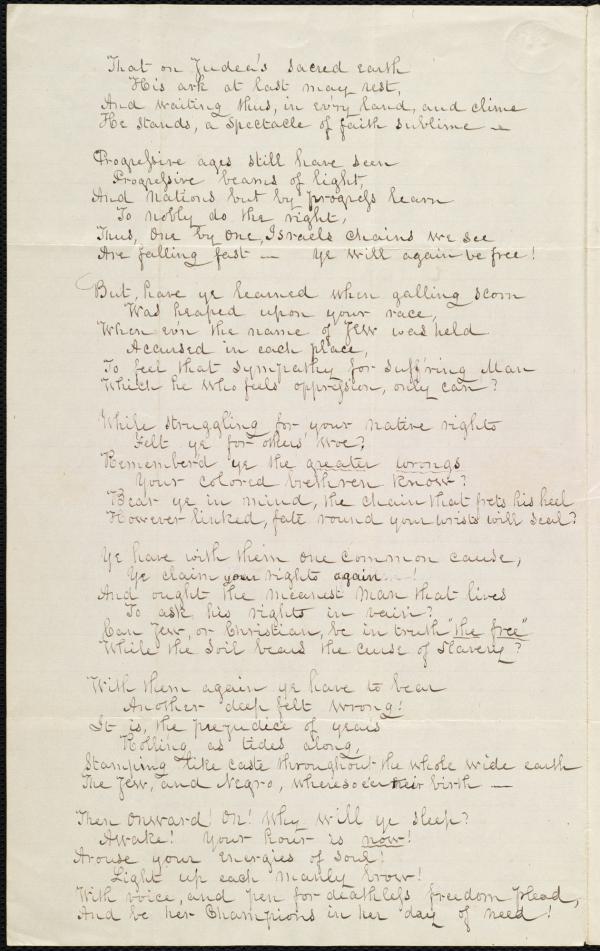 That on Judea's sacred earth
His ark at last may rest,
And waiting thus, in ev'ry land, and clime
He stands, a spectacle of faith sublime —

Progressive ages still have seen
Progressive beams of light,
And Nations but by progress learn
To nobly do the right,
Thus, one by one, Israels chains we see
Are falling fast — Ye will again be free!

But, have ye learned when galling scorn
Was heaped upon your race,
When e'en the name of Jew was held
Accursed in each place,
To feel that sympathy for suff'ring Man
Which he who feels oppression, only can?

While struggling for your native rights
Felt ye for others' woe?
Remember'd ye the greater wrongs
Your colored brethren know?
Bear ye in mind, the chain that frets his heel
However linked, fate round your wrists will seal?

Ye have with them one common cause,
Ye claim your rights again!
And ought the meanest man that lives
To ask his rights in vain?
Can Jew, or Christian, be in truth "the free"
While the Soil bears the curse of Slavery?

With them again ye have to bear
Another deep felt wrong!
It is, the prejudice of years
Rolling as tides along,
Stamping like caste throughout the whole wide earth
The Jew, and Negro, wheresoe'er their birth —

Then Onward! On! Why will ye sleep?
Awake! Your hour is now!
Arouse your energies of soul!
Light up each manly brow!
With voice, and pen for deathless freedom plead,
And be her Champions in her day of need!